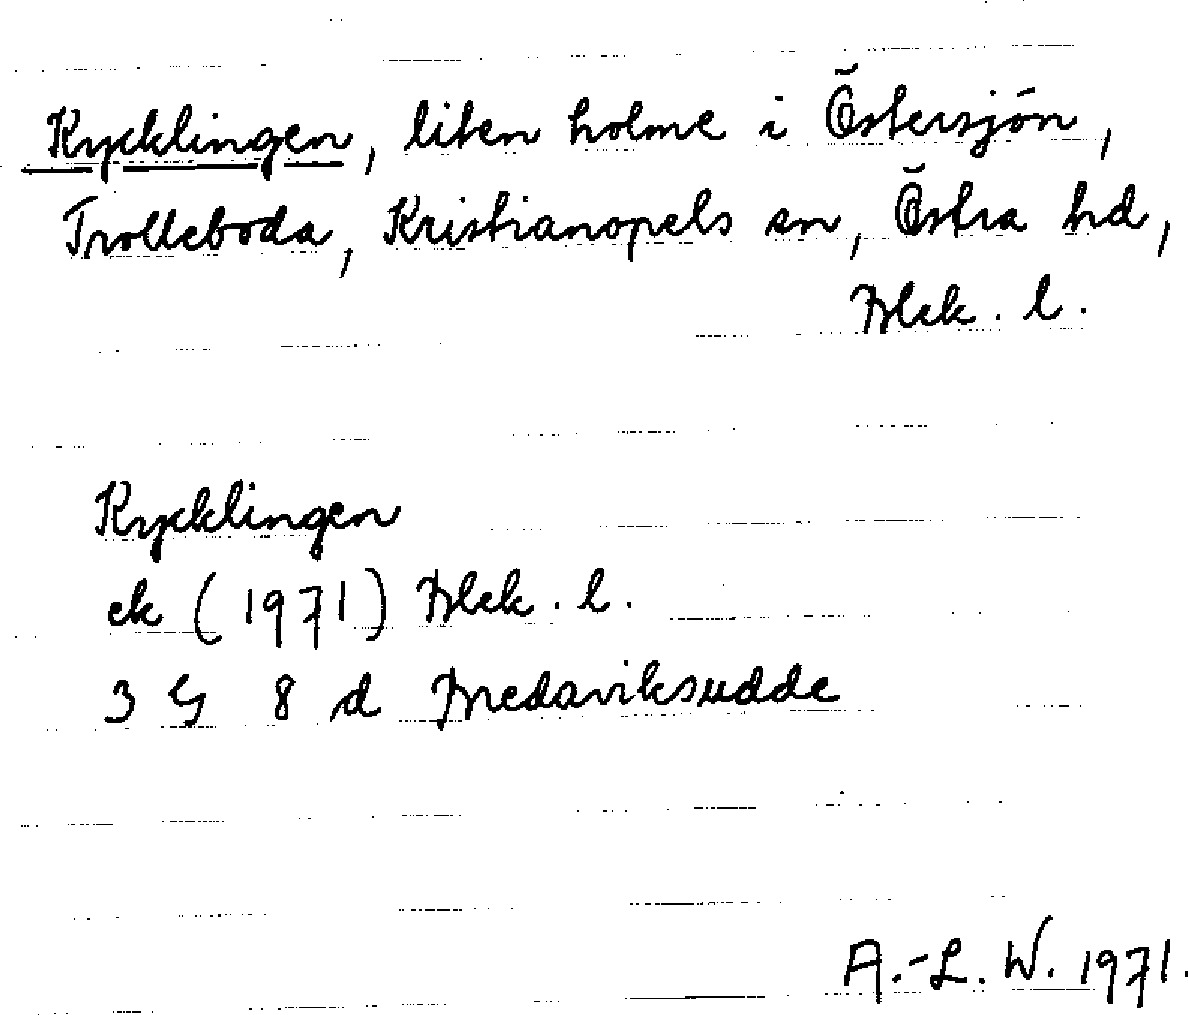 Kycklingen, liten holme i Östersjön,
Trolleboda, Kristianopels sn, Östra hd,
Blek. l.
Kycklingen
ek (1971) Blek. l.
3 G 8 d Bredaviksudde
A.-L. W. 1971.